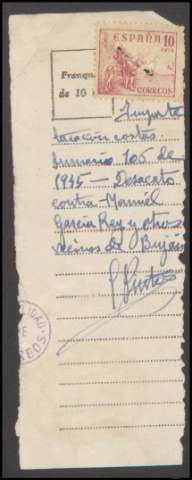 ESPAÑA
10
CTS
CORREOS
Franqu
de 10
Importe
tasación costas.
Sumario 105 de
1945 — Desacato
contra Manuel
García Rey y otros
vecinos de Buján